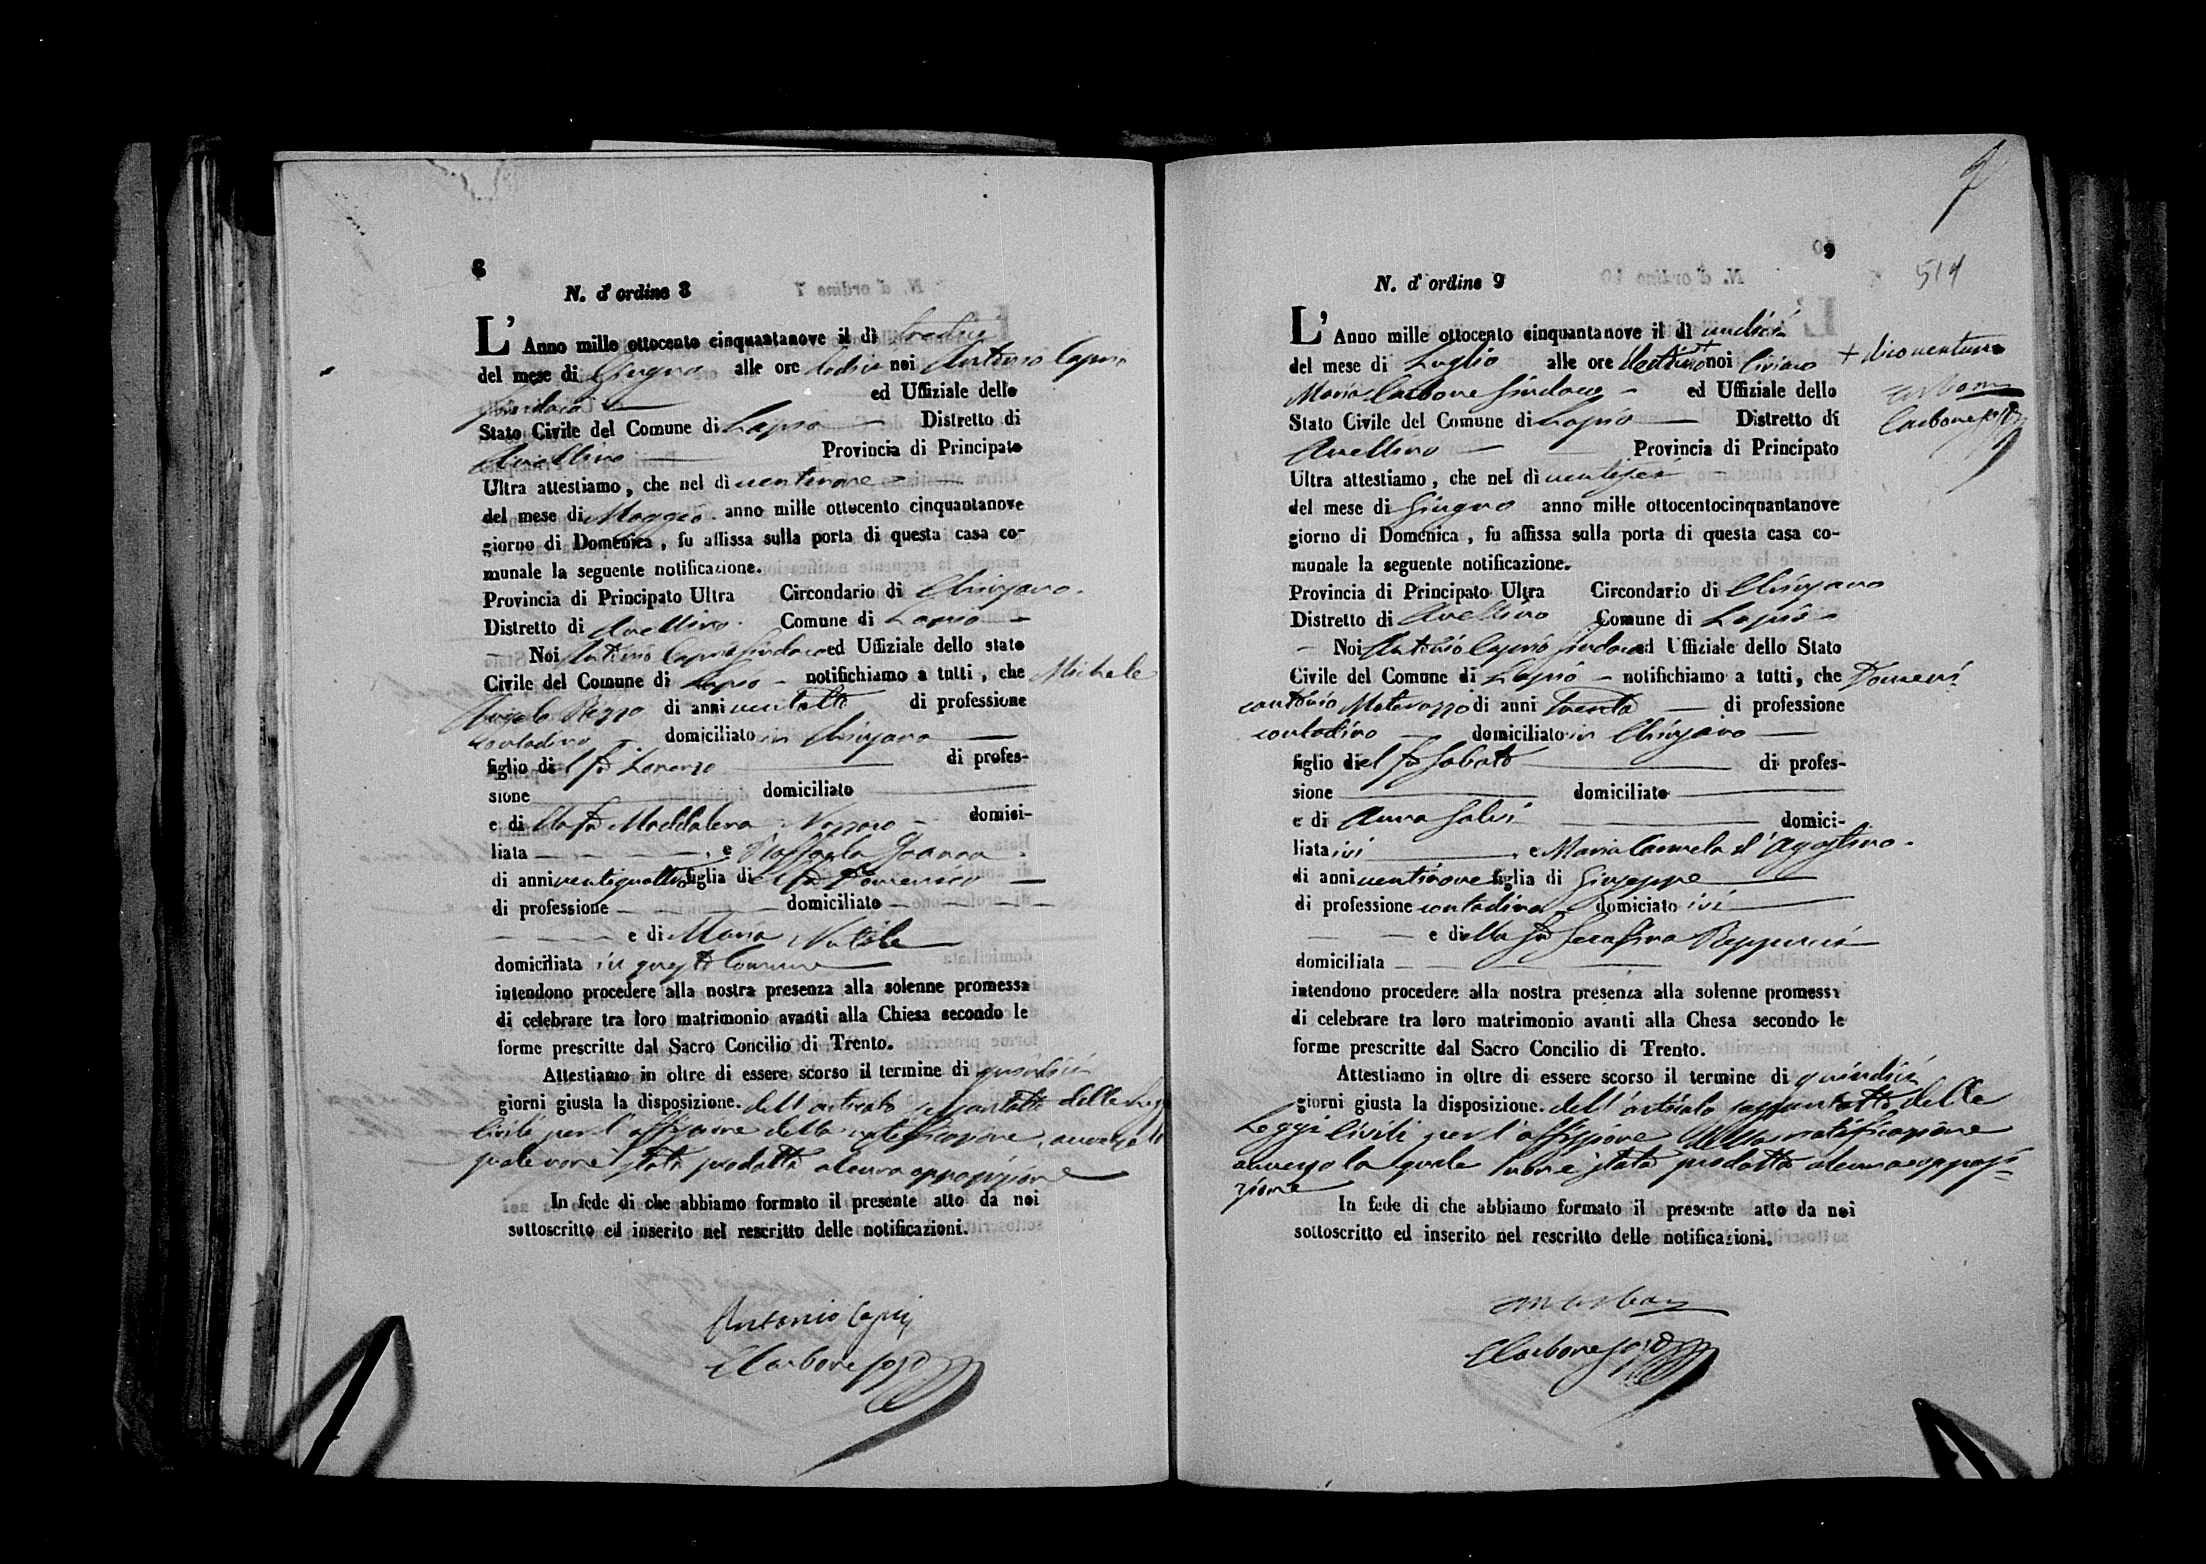 8
N. d'ordine 8
L' Anno mille ottocento cinquantanove il dì tredici
del mese di Giugno alle ore dodici noi Antonio Caprio
Sindaco ed Uffiziale dello
Stato Civile del Comune di Lapio Distretto di
Avellino Provincia di Principato
Ultra attestiamo, che nel dì ventinove
del mese di Maggio anno mille ottocento cinquantanove
giorno di Domenica, fu affissa sulla porta di questa casa co-
munale la seguente notificazione.
Provincia di Principato Ultra Circondario di Chiusano.
Distretto di Avellino. Comune di Lapio
Noi Antonio Caprio Sindaco ed Uffiziale dello stato
Civile del Comune di Lapio notifichiamo a tutti, che Michele
Angelo Rizzo di anni ventotto di professione
contadino domiciliato in Chiusano
figlio del fu Lorenzo di profes-
sione domiciliato
e di lla fu Maddalena Nazzaro domici-
liata e Raffaela
di anni ventiquattro figlia del fu Domenico
di professione domiciliato
e di Maria Natale
domiciliata in questo Comune
intendono procedere alla nostra presenza alla solenne promessa
di celebrare tra loro matrimonio avanti alla Chiesa secondo le
forme prescritte dal Sacro Concilio di Trento.
Attestiamo in oltre di essere scorso il termine di quindici
giorni giusta la disposizione. dell'articolo sessantotto delle Leggi
Civili per l'affissione della notificazione, avverso la
quale non è stata prodotta alcuna opposizione
In fede di che abbiamo formato il presente atto da noi
sottoscritto ed inserito nel rescritto delle notificazioni.
Antonio Caprio
Carbone
9
514
N. d'ordine 9
L' Anno mille ottocento cinquantanove il dì undici
del mese di Luglio alle ore noi Ciriaco
+ dico ventuno
Maria Carbone Sindaco ed Uffiziale dello
Carbone
Stato Civile del Comune di Lapio Distretto di
Avellino Provincia di Principato
Ultra attestiamo, che nel dì ventisei
del mese di Giugno anno mille ottocentocinquantanove
giorno di Domenica, fu affissa sulla porta di questa casa co-
munale la seguente notificazione.
Provincia di Principato Ultra Circondario di Chiusano
Distretto di Avellino Comune di Lapio
Noi Antonio Caprio Sindaco ed Uffiziale dello Stato
Civile del Comune di Lapio notifichiamo a tutti, che Domeni
cantonio Matarazzo di anni Trenta di professione
contadino domiciliato in Chiusano
figlio del fu Sabato di profes-
sione domiciliato
e di Anna Salvi domici-
liata ivi e Maria Carmela d'Agostino.
di anni ventinove figlia di Giuseppe
di professione contadina domiciato ivi
e di lla fu Serafina
domiciliata
intendono procedere alla nostra presenza alla solenne promessa
di celebrare tra loro matrimonio avanti alla Chesa secondo le
forme prescritte dal Sacro Concilio di Trento.
Attestiamo in oltre di essere scorso il termine di quindici
giorni giusta la disposizione. dell'articolo sessantotto delle
Leggi Civili per l'affissione della notificazione
avverso la quale non è stata prodotta alcuna opposi
zione
In fede di che abbiamo formato il presente atto da noi
sottoscritto ed inserito nel rescritto delle notificazioni.
Carbone